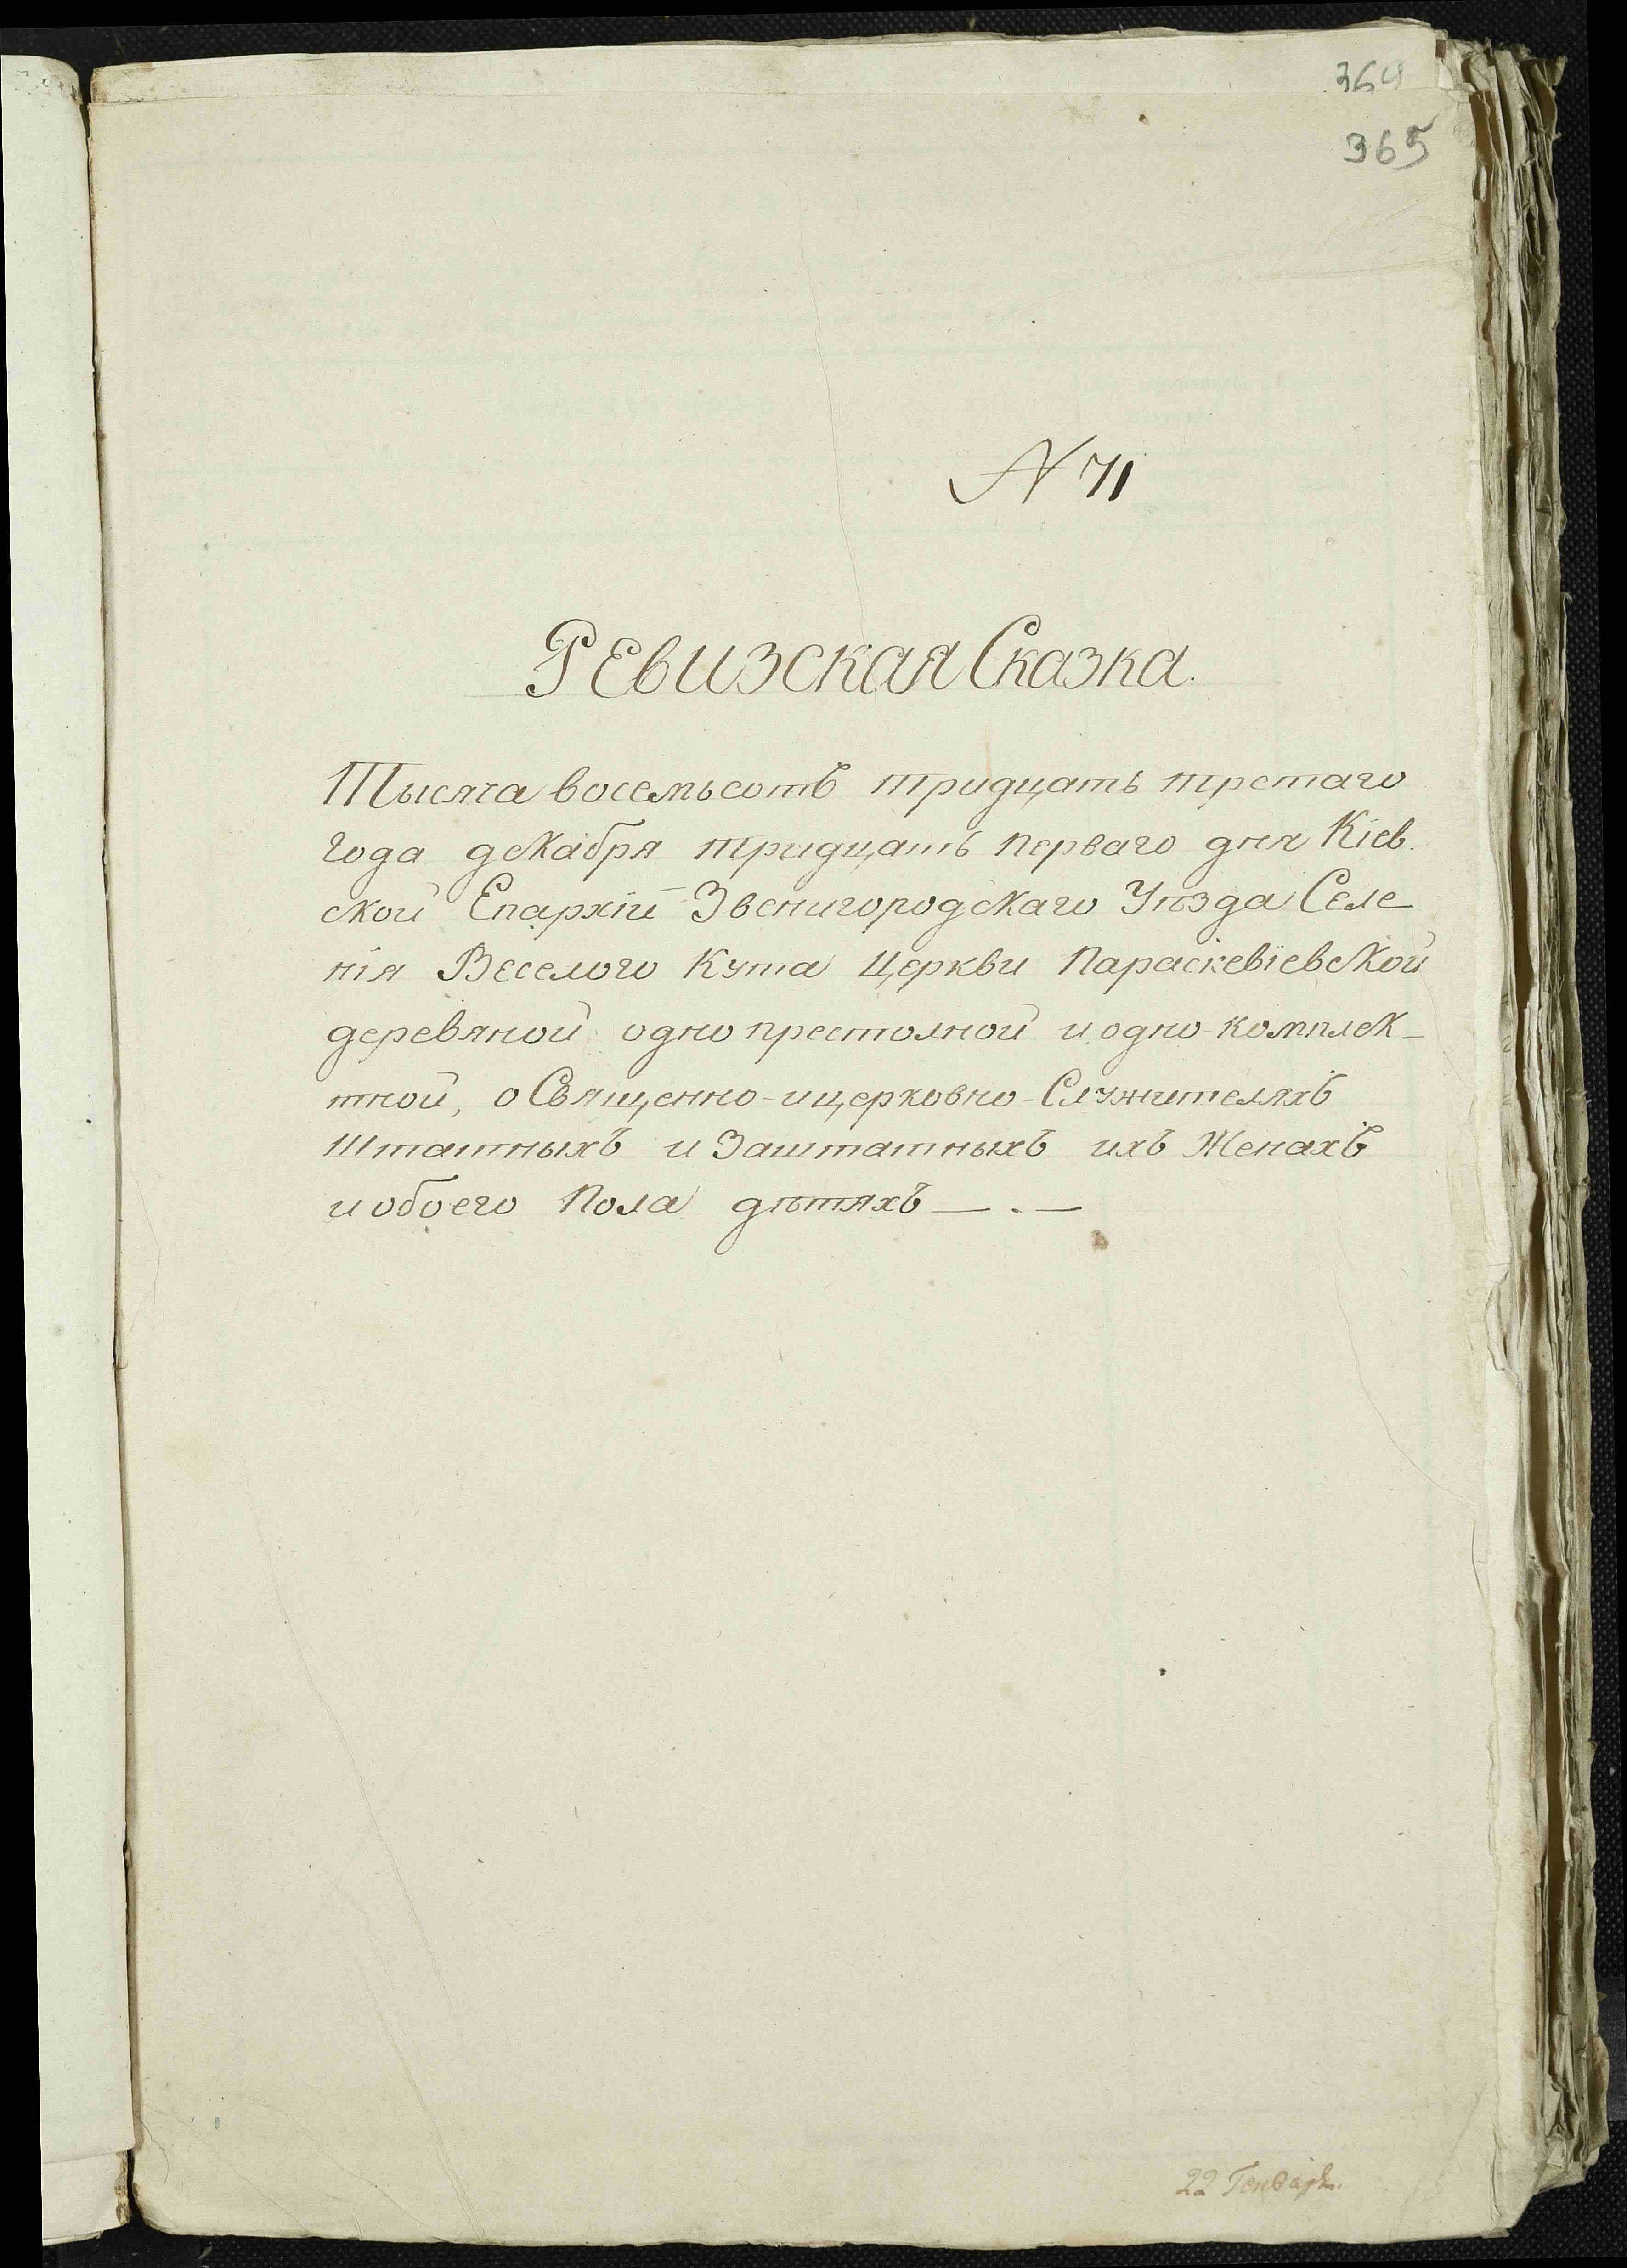 364
365
N 71
Ревизская Сказка.
Тысяча восемьсотъ тридцать третаго
года декабря тридцать перваго дня Кіев.
ской Епархіи Звенигородскаго Уѣзда Селе-
нія Веселого Кута Церкви Параскевіевской
деревяной одно престолной и одно-комплек-
тной, о Священно-ицерковно-Служителяхъ
Штатныхъ и Заштатныхъ ихъ Женахъ
и обоего Пола дѣтяхъ — . —
22 Генваря.